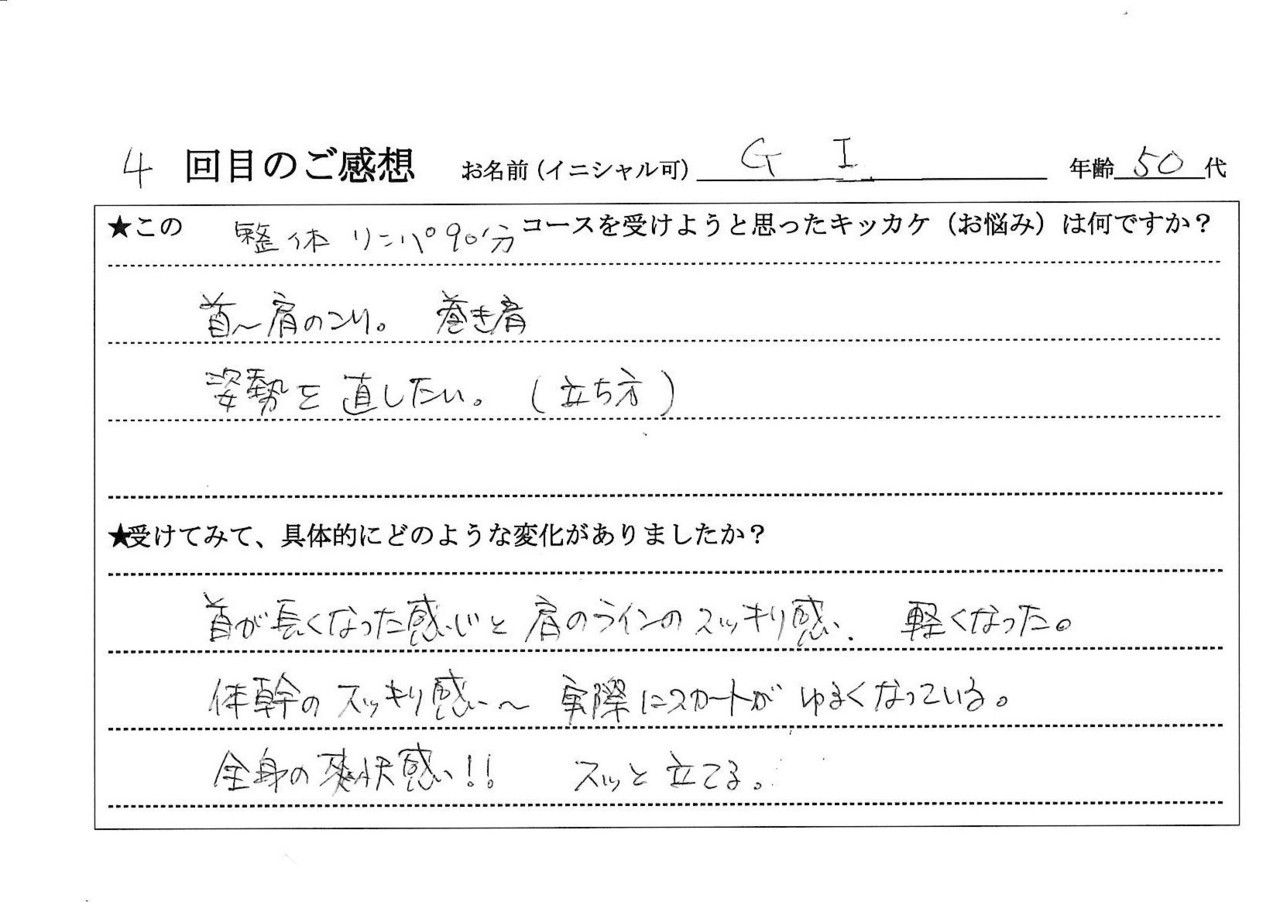 4 回目のご感想 お名前(イニシャル可) G I 年齢 50 代
★この 整体 リンパ90分 コースを受けようと思ったキッカケ(お悩み)は何ですか?
首〜肩のこり。 巻き肩
姿勢を直したい。(立ち方)
★受けてみて、具体的にどのような変化がありましたか?
首が長くなった感じと肩のラインのスッキリ感、軽くなった。
体幹のスッキリ感〜 実際にスカートがゆるくなっている。
全身の爽快感!! スッと立てる。